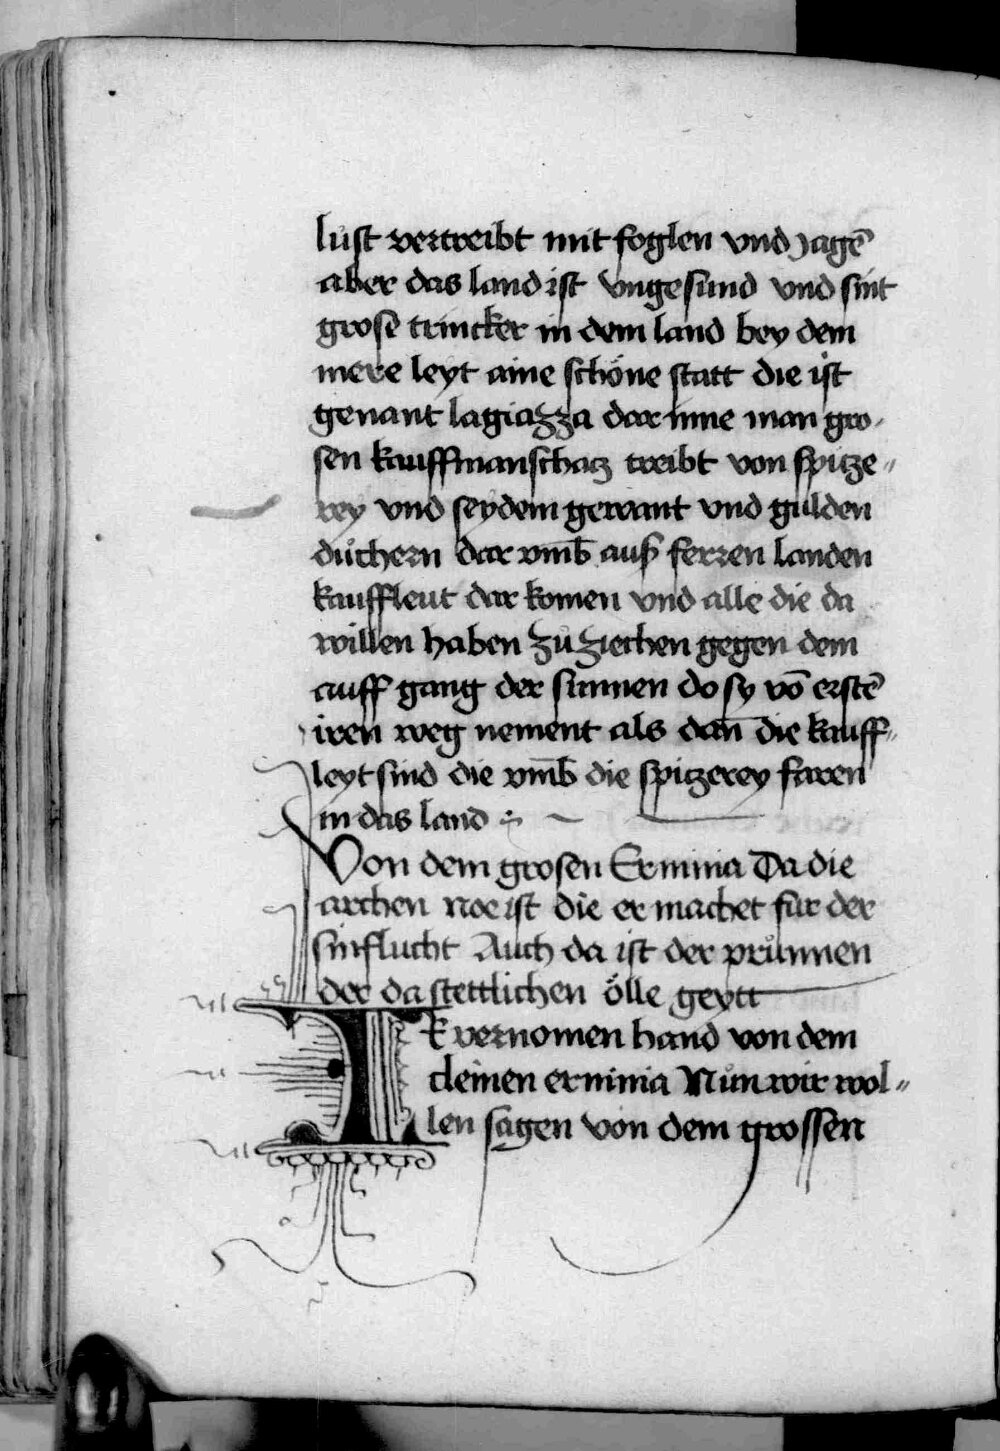 lust vertreibt mit foglen vnd jagē
aber das land ist vngesund vnd sint
grose trincker in dem land bey dem
mere leyt aine schöne statt die ist
genant lagiazza dar inne man gro-
sen kauffmanschatz treibt von spitze-
rey vnd seydem gewant vnd gulden
důchern dar vmb auß ferren landen
kauffleut dar komen vnd alle die da
willen haben zů ziechen gegen dem
auff gang der sunnen do sy vō erstē
iren weg nement als dan̄ die kauff-
leyt sind die vmb die spitzerey faren
in das land
Von dem grosen Erminia Da die
archen noe ist die er machet fur der
sinflucht Auch da ist der průnnen
der da stettlichen ölle geytt
Ir vernomen hand von dem
cleinen erminia Nůn wir wol-
len sagen von dem grossen